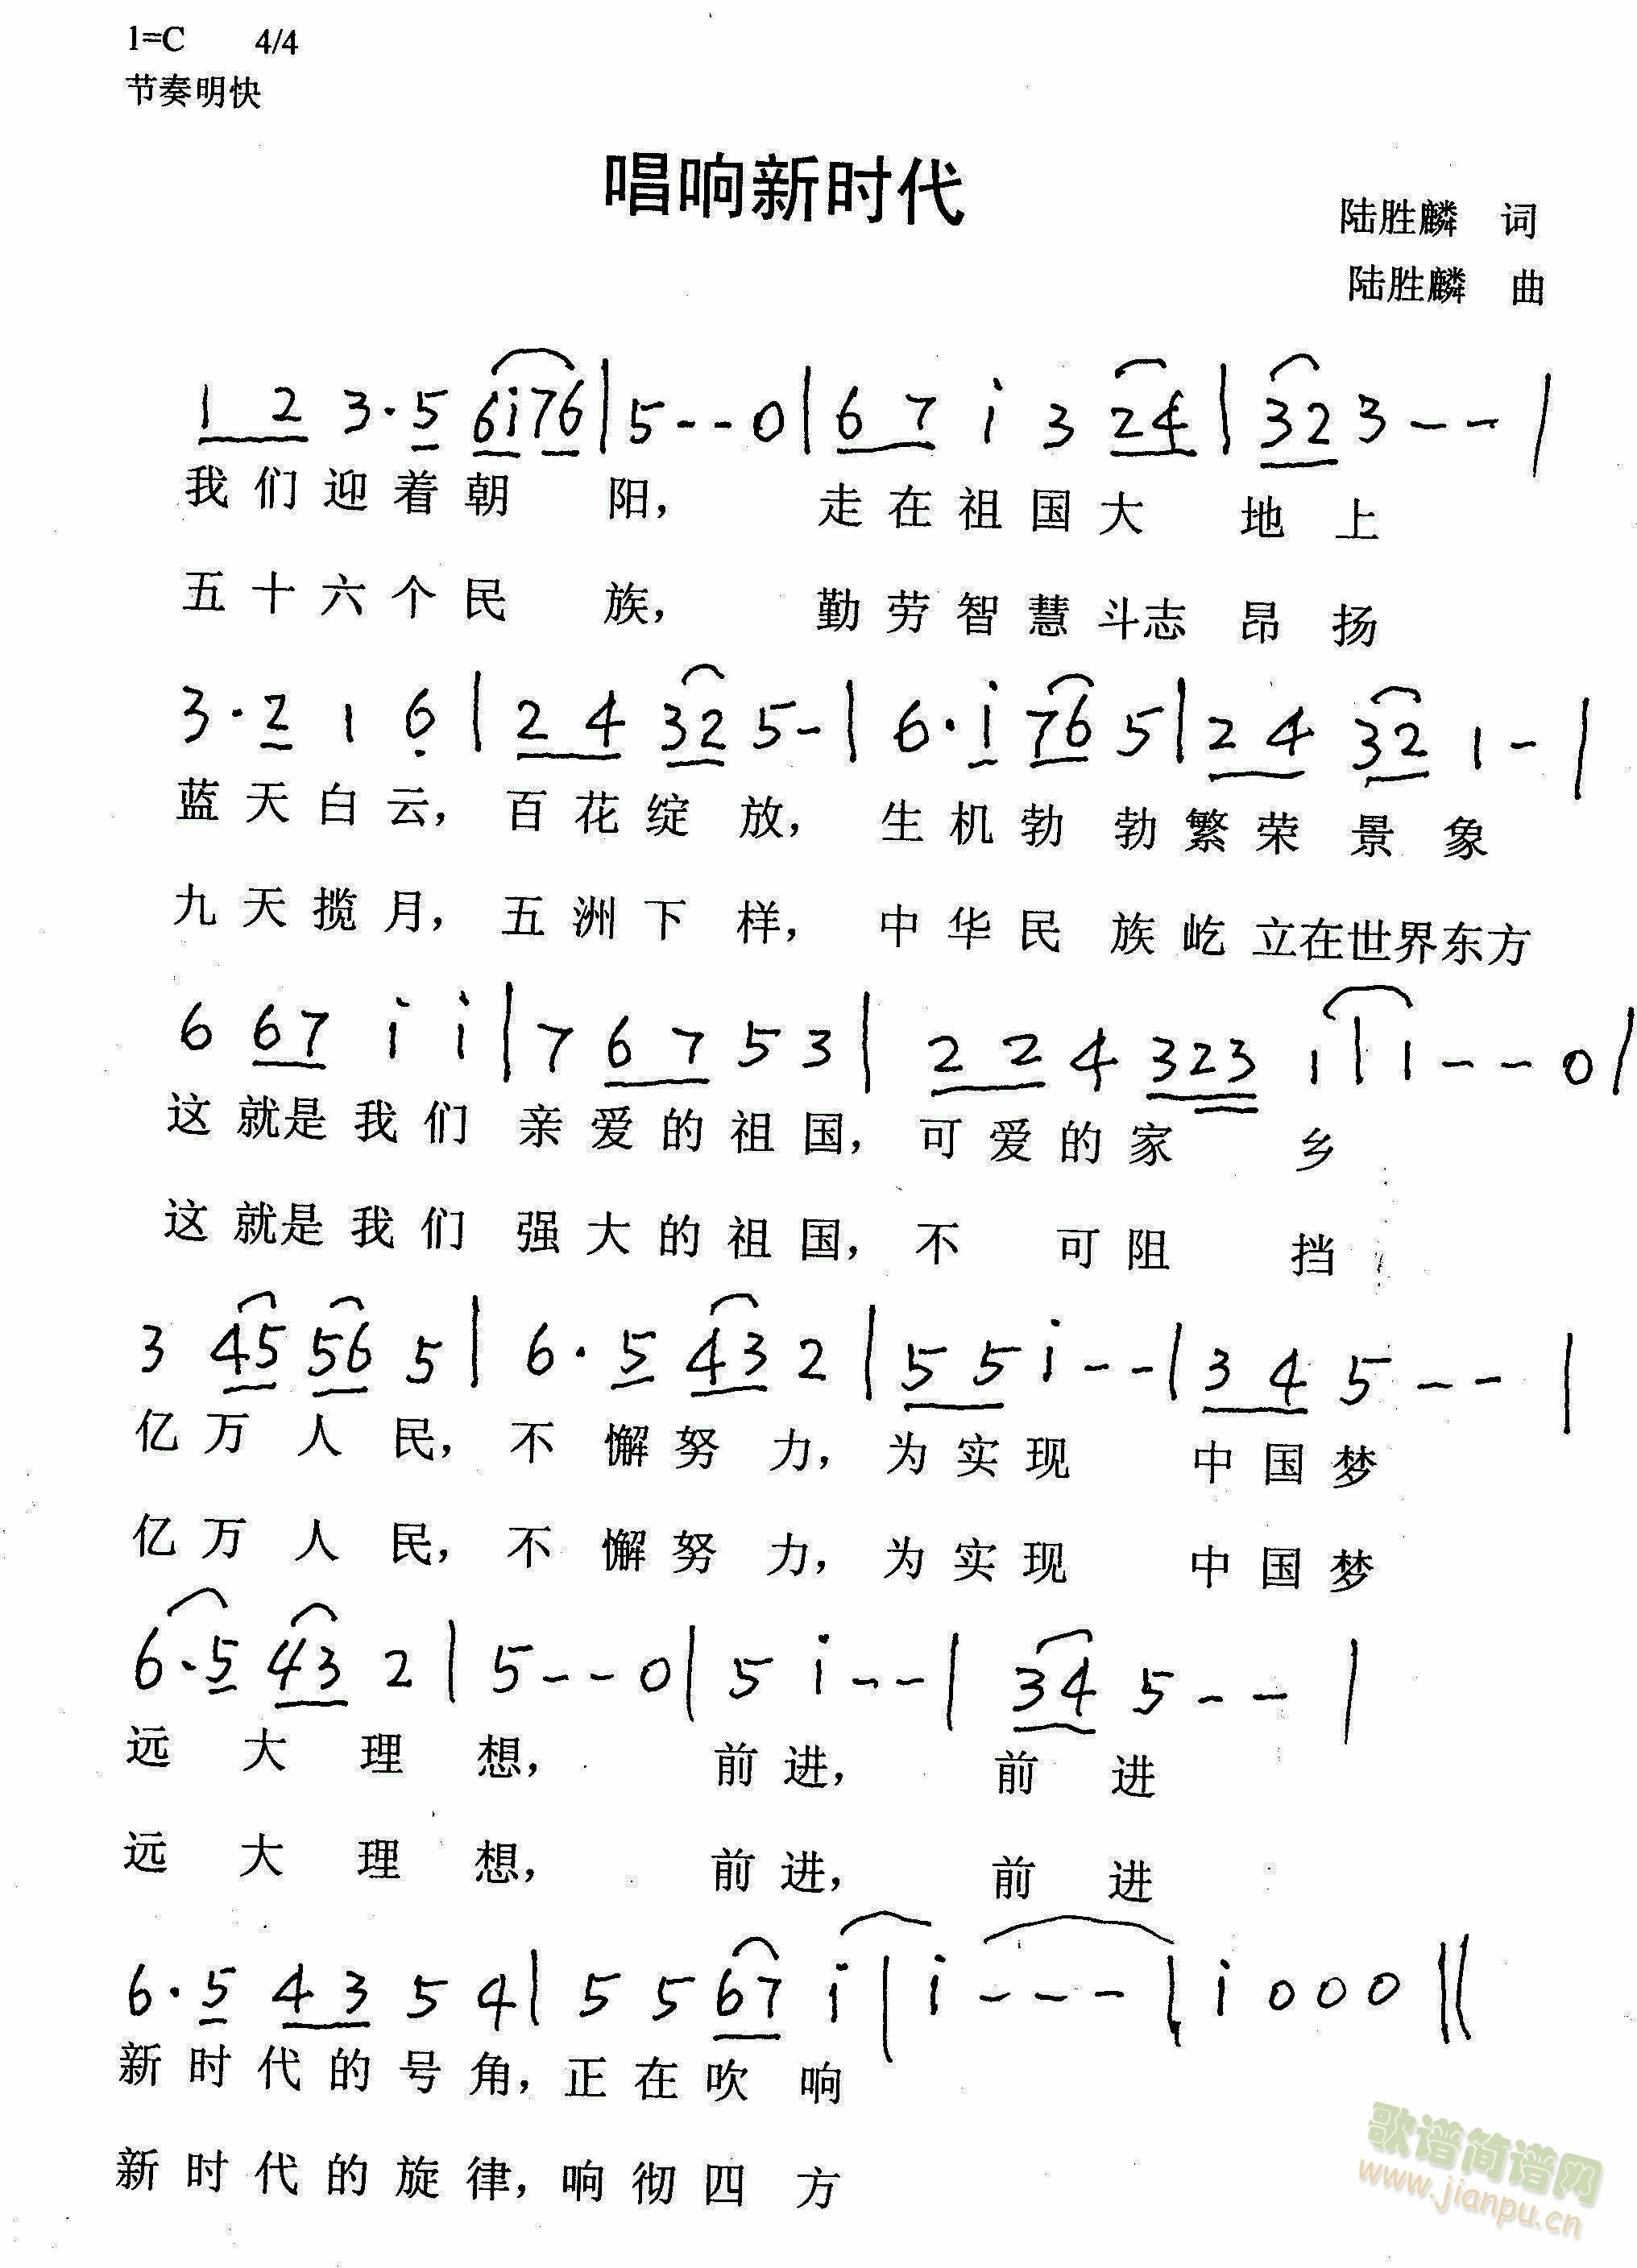 1=C 4/4
节奏明快
唱响新时代
陆胜麟 词
陆胜麟 曲
1 2 3·5 6i76|5--0|6 7 i 3 24|32 3--|
我们迎着朝 阳, 走在祖国大 地 上
五十六个民 族, 勤劳智慧斗志 昂 扬
3·2 1 6|2 4 32 5-|6·i 76 5|2 4 32 1-|
蓝天白云, 百花绽 放, 生机勃 勃繁荣 景 象
九天揽月, 五洲下 样, 中华民 族屹 立在世界东方
6 67 i i|7 6 7 5 3|2 2 4 323 i|i---0|
这 就是我们 亲爱的祖国, 可爱的家 乡
这 就是我们 强大的祖国, 不 可阻 挡
3 45 56 5|6·5 43 2|5 5 i--|3 4 5--|
亿万 人 民, 不 懈努 力, 为实现 中国梦
亿万 人 民, 不 懈努 力, 为实现 中国梦
6·5 43 2|5--0|5 i--|34 5--|
远 大 理 想, 前进, 前 进
远 大 理 想, 前进, 前 进
6·5 4 3 5 4|5 5 67 i|i---|i 0 0 0||
新时代的号角, 正在吹 响
新时代的旋律, 响彻四 方
歌谱简谱网
www.jianpu.cn